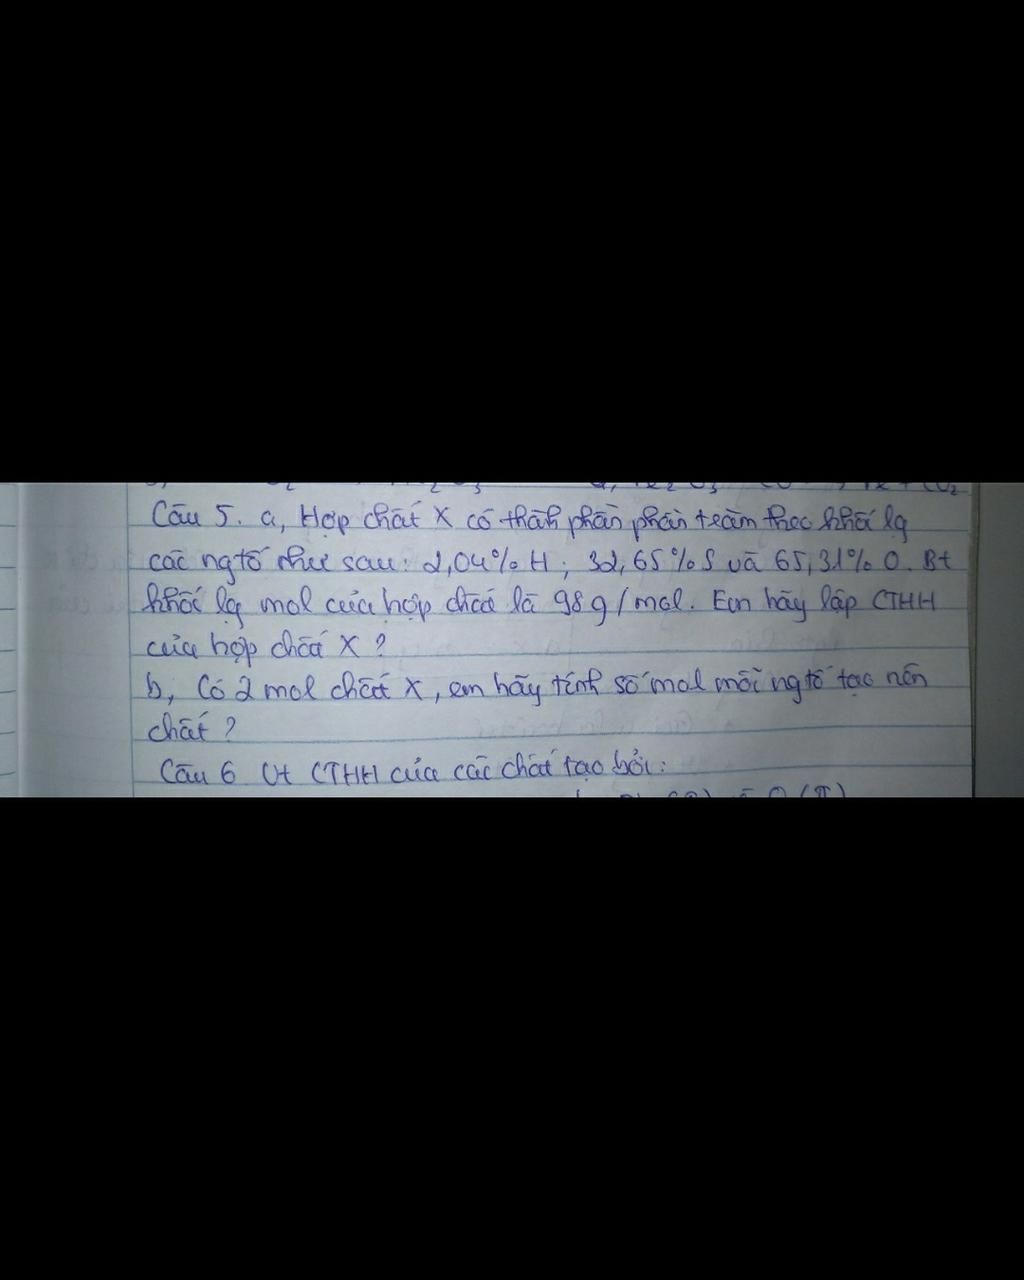 Câu 5. a, Hợp chất X có thành phần phần trăm theo khối lg
các ngtố như sau: 2,04% H; 32,65% S và 65,31% O. Bt
khối lg mol của hợp chất là 98 g/mol. Em hãy lập CTHH
của hợp chất X?
b, Có 2 mol chất X, em hãy tính số mol mỗi ngtố tạo nên
chất?
Câu 6 Vt CTHH của các chất tạo bởi: